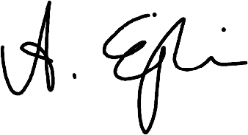 A. Egli